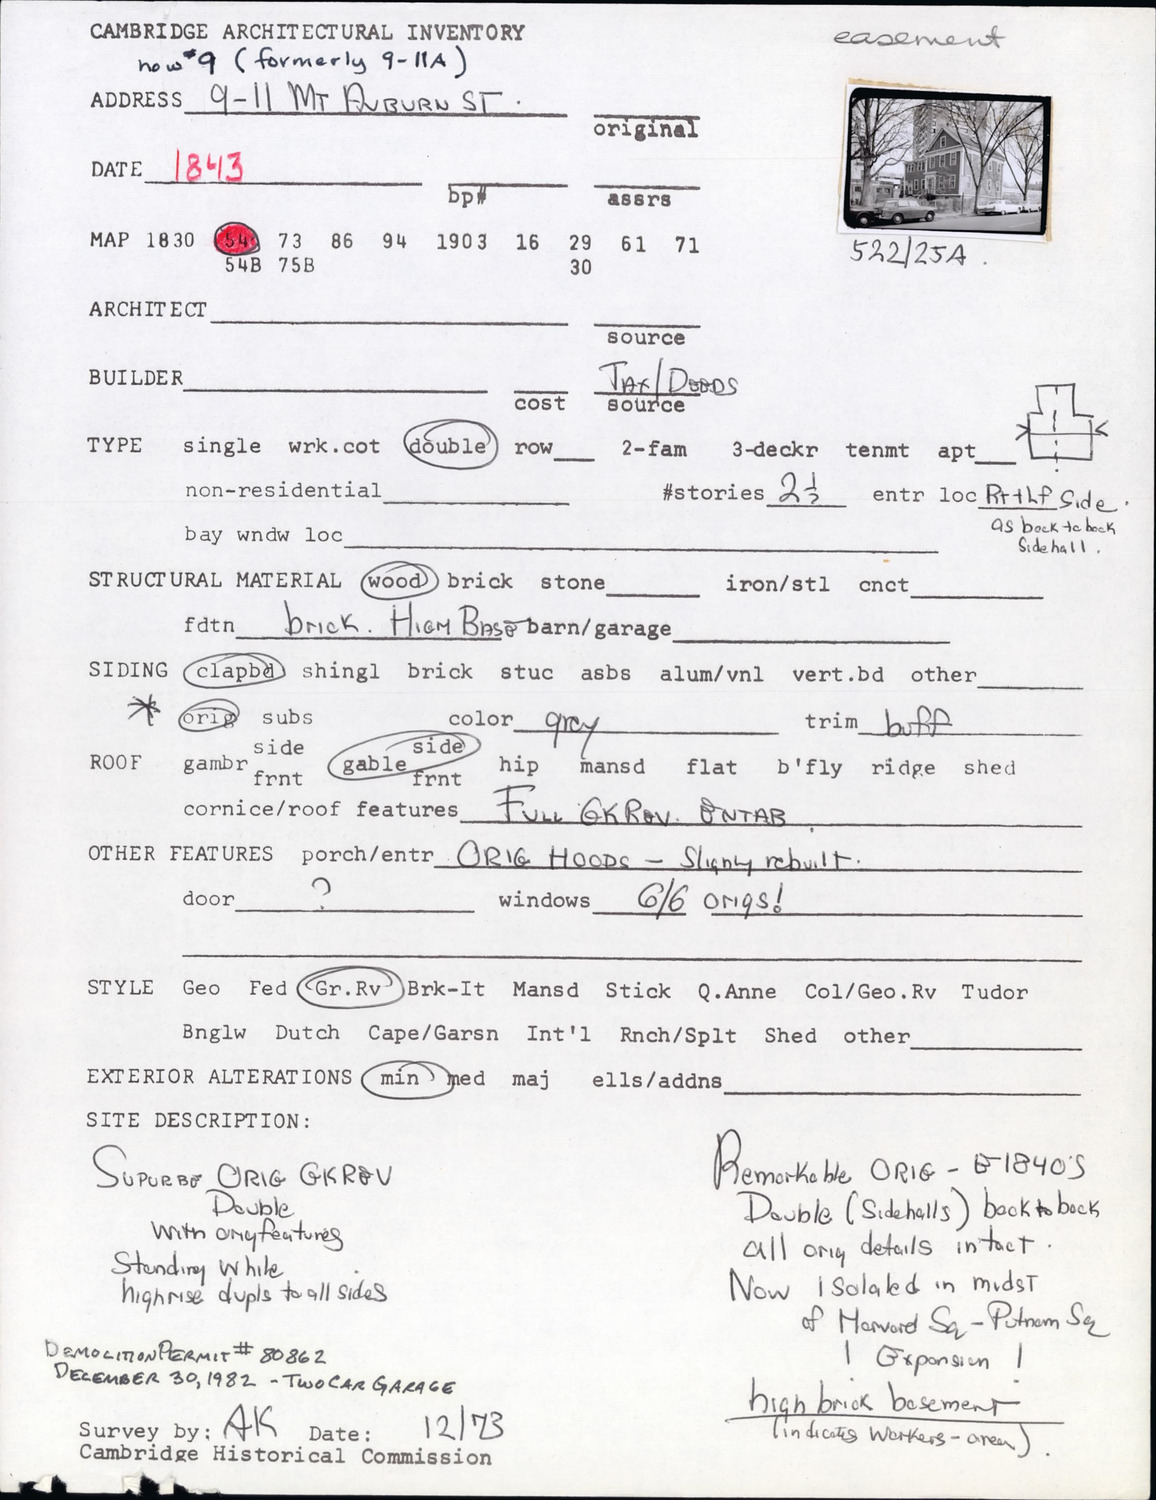 CAMBRIDGE ARCHITECTURAL INVENTORY
easement
now #9 (formerly 9-11A)
ADDRESS 9-11 MT AUBURN ST.
original
DATE 1843
bp# assrs
MAP 1830 54 73 86 94 1903 16 29 61 71
54B 75B 30
522/25A.
ARCHITECT
source
BUILDER TAX/DEEDS
cost source
TYPE single wrk.cot double row 2-fam 3-deckr tenmt apt
non-residential #stories 2½ entr loc Rt+Lf Side.
as back to back
Sidehall.
bay wndw loc
STRUCTURAL MATERIAL wood brick stone iron/stl cnct
fdtn brick. HIGH BASE barn/garage
SIDING clapbd shingl brick stuc asbs alum/vnl vert.bd other
* orig subs color grey trim buff
ROOF gambr side frnt gable side frnt hip mansd flat b'fly ridge shed
cornice/roof features FULL GKREV. ENTAB
OTHER FEATURES porch/entr ORIG HOODS - Slighly rebuilt.
door ? windows 6/6 origs!
STYLE Geo Fed Gr.Rv Brk-It Mansd Stick Q.Anne Col/Geo.Rv Tudor
Bnglw Dutch Cape/Garsn Int'l Rnch/Splt Shed other
EXTERIOR ALTERATIONS min med maj ells/addns
SITE DESCRIPTION:
SUPURBE ORIG GKREV
Double
with orig features
Standing while
highrise dupls to all sides
Remarkable ORIG - E1840'S
Double (Sidehalls) back to back
all orig details intact.
Now isolated in midst
of Harvard Sq - Putnam Sq
! Expansion !
high brick basement
(indicates workers-area).
DEMOLITION PERMIT # 80862
DECEMBER 30, 1982 - TWO CAR GARAGE
Survey by: AK Date: 12/73
Cambridge Historical Commission